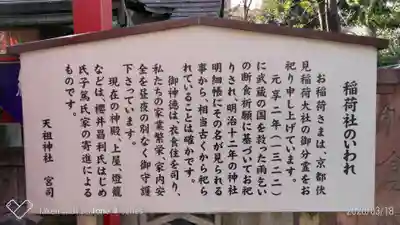 稲荷社のいわれ
お稲荷さまは、京都伏
見稲荷大社の御分霊をお
祀り申し上げています。
元享二年(一三二二)
に武蔵の国を救った雨乞い
の断食祈願に基づいてお祀
りされ、明治十二年の神社
明細帳にその名が見られる
事から、相当古くから祀ら
れていることは確かです。
御神徳は、衣食住を司り、
私たちの家業繁栄、家内安
全を昼夜の別なく御守護
下さっています。
現在の神殿、上屋、燈籠
などは、櫻井昌利氏はじめ
氏子篤氏家の寄進による
ものです。
天祖神社 宮司
2020/03/18